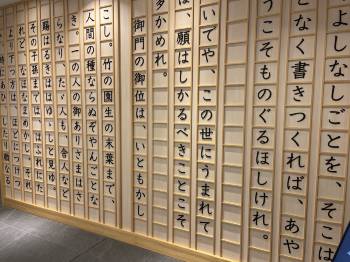 よしなしごとを、そこは
となく書きつくれば、あや
うこそものぐるほしけれ。
いでや、この世にうまれて
は、願はしかるべきことこそ
多かめれ。
御門の御位は、いともかし
こし。竹の園生の末葉まで、
人間の種ならぬぞやんごとな
き。一の人の御ありさまはさ
らなり、たゞ人も、舎人など
賜はるきははゆゝしと見ゆ。
その子孫までは、はふれにた
れど、なほなまめかし。そ
れより下つ方は、ほどにつけつ